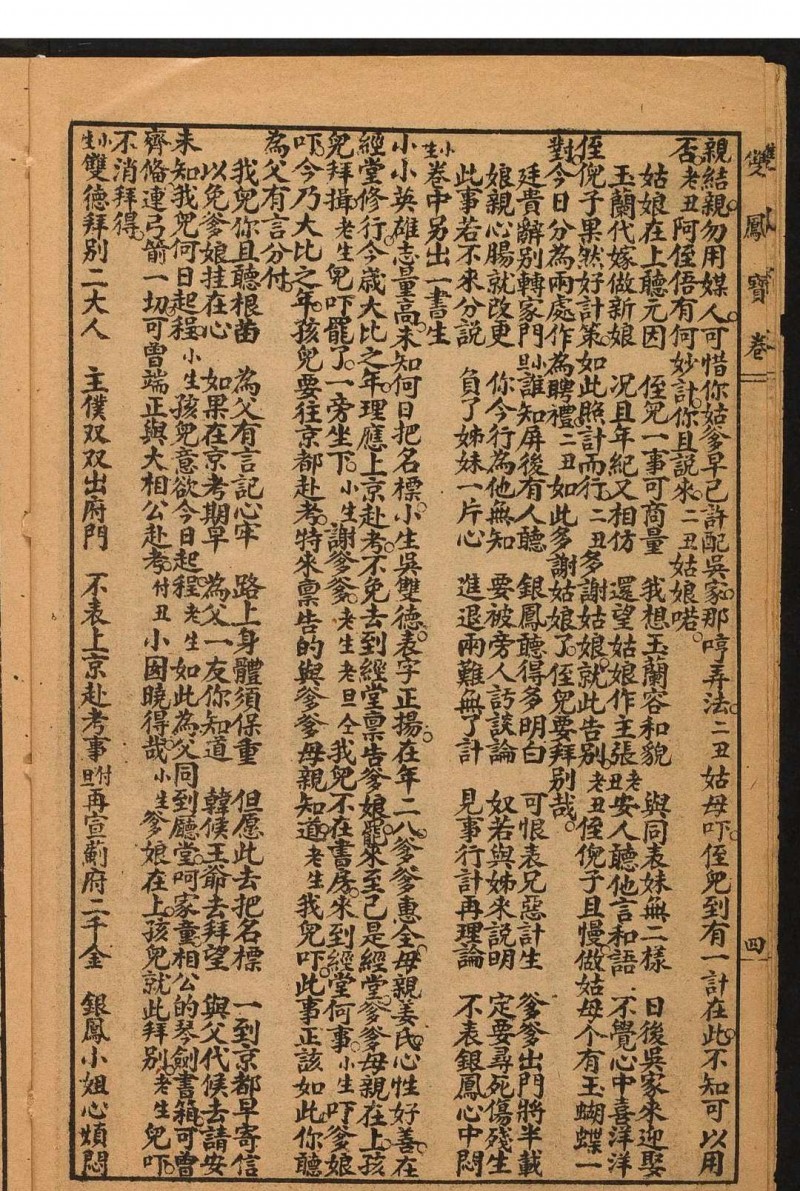 雙鳳寶卷
四
親結親勿用媒人可惜你姑爹早已許配吳家那哼弄法二丑姑母吓侄兒到有一計在此不知可以用
否老丑阿侄俉有何妙計你且說來二丑姑娘喏
姑娘在上聽元因 侄兒一事可商量 我想玉蘭容和貌 與同表妹無二樣 日後吳家來迎娶
玉蘭代嫁做新娘 况且年紀又相仿 還望姑娘作主張老丑安人聽他言和語 不覺心中喜洋洋
侄伲子果然好計策如此照計而行二丑多謝姑娘就此告别老丑侄伲子且慢做姑母个有玉蝴蝶一
對今日分為兩處作為聘禮二丑如此多謝姑娘了侄兒要拜别哉
廷貴辭别轉家門小旦誰知屏後有人聽 銀鳳聽得多明白 可恨表兄惡計生 爹爹出門將半載
娘親心腸就改更 你今行為他無知 要被旁人訪談論 奴若與姊來說明 定要尋死傷殘生
此事若不來分說 負了姊妹一片心 進退兩難無了計 見事行計再理論 不表銀鳳心中悶
小生卷中另出一書生
小小英雄志量高未知何日把名標小生吳雙德表字正揚在年二八爹爹惠全母親姜氏心性好善在
經堂修行今歲大比之年理應上京赴考不免去到經堂禀告爹娘罷來至已是經堂爹爹母親在上孩
兒拜揖老生兒吓罷了一旁坐下小生謝爹爹老生老旦仝我兒不在書房來到經堂何事小生吓爹娘
吓今乃大比之年孩兒要往京都赴考特來禀告的與爹爹母親知道老生我兒吓此事正該如此你聽
為父有言分付
我兒你且聽根苗 為父有言記心牢 路上身體須保重 但愿此去把名標 一到京都早寄信
以免爹娘挂在心 如果在京考期早 為父一友你知道 韓侯王爺去拜望 與父代候去請安
未知我兒何日起程小生孩兒意欲今日起程老生如此為父同到廳堂呵家童相公的琴劍書箱可曾
齊俻連弓箭一切可曾端正與大相公赴考付丑小囡曉得哉小生爹娘在上孩兒就此拜别老生兒吓
不消拜得
小生雙德拜别二大人 主僕双双出府門 不表上京赴考事付旦再宣蘄府二千金 銀鳳小姐心煩悶